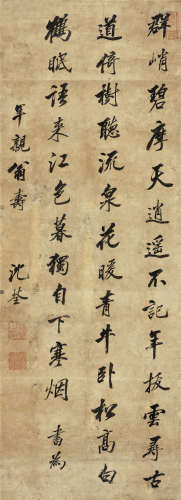 群峭碧摩天逍遥不記年撥雲尋古
道倚樹聽流泉花暖青牛卧松高白
鶴眠語来江色暮獨自下寒烟 書為
年親翁壽
沈荃